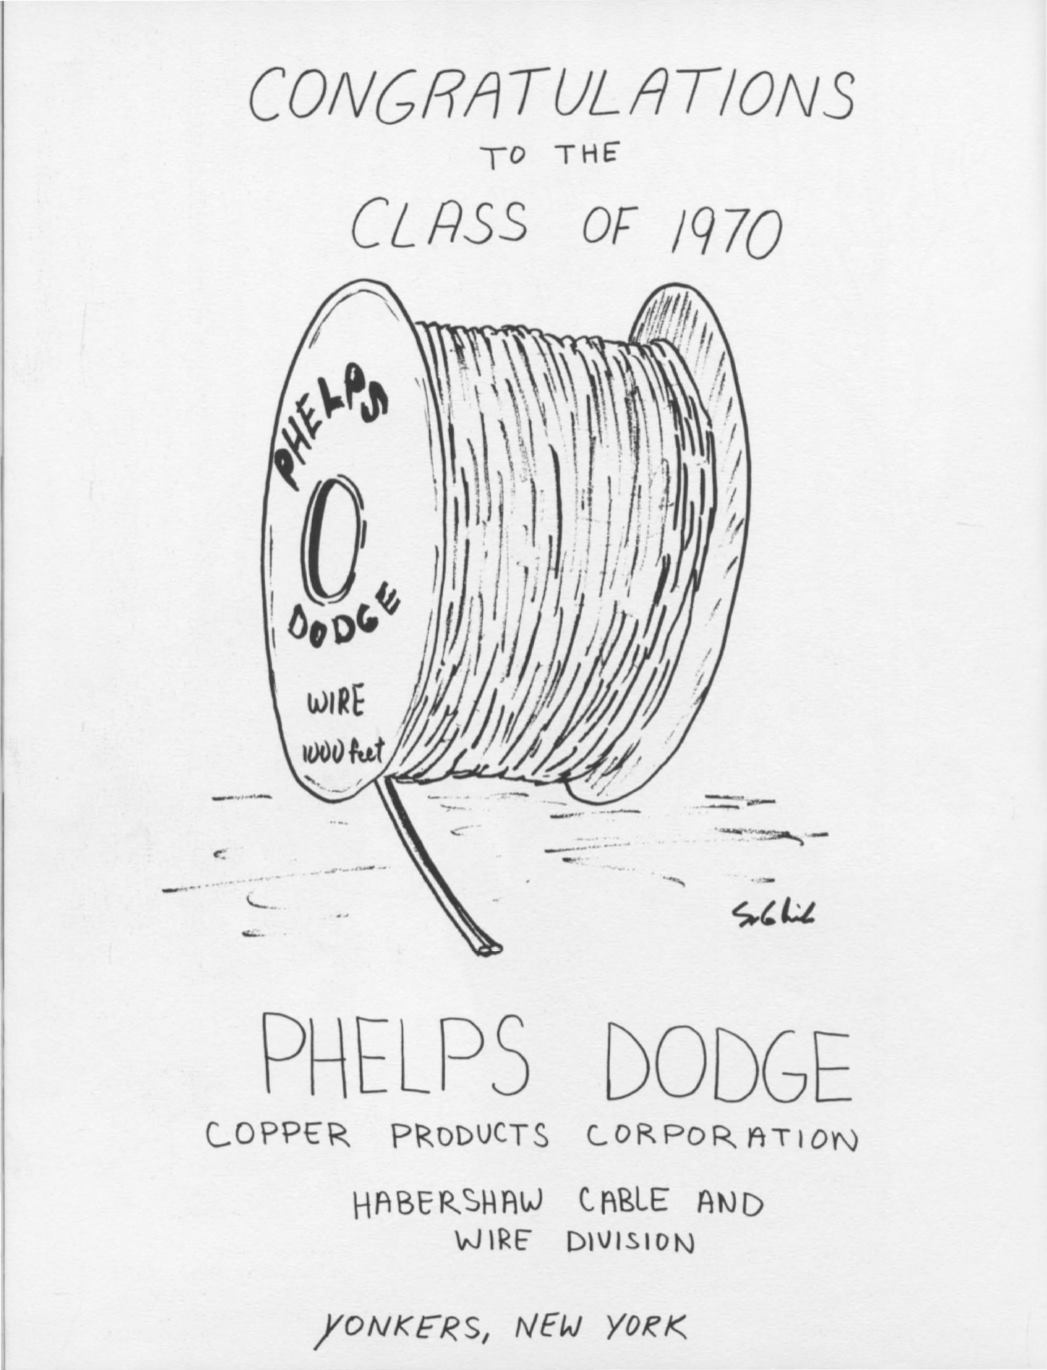 CONGRATULATIONS
TO THE
CLASS OF 1970
PHELPS
DODGE
WIRE
1000 feet
PHELPS DODGE
COPPER PRODUCTS CORPORATION
HABERSHAW CABLE AND
WIRE DIVISION
YONKERS, NEW YORK